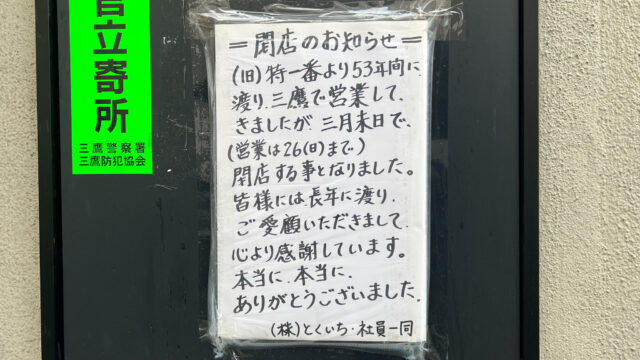 官立寄所
三鷹警察署
三鷹防犯協会
＝閉店のお知らせ＝
(旧)特一番より53年間に
渡り、三鷹で営業して、
きましたが、三月末日で、
(営業は26(日)まで)
閉店する事となりました。
皆様には、長年に渡り、
ご愛顧いただきまして、
心より感謝しています。
本当に、本当に、
ありがとうございました。
(株)とくいち・社員一同